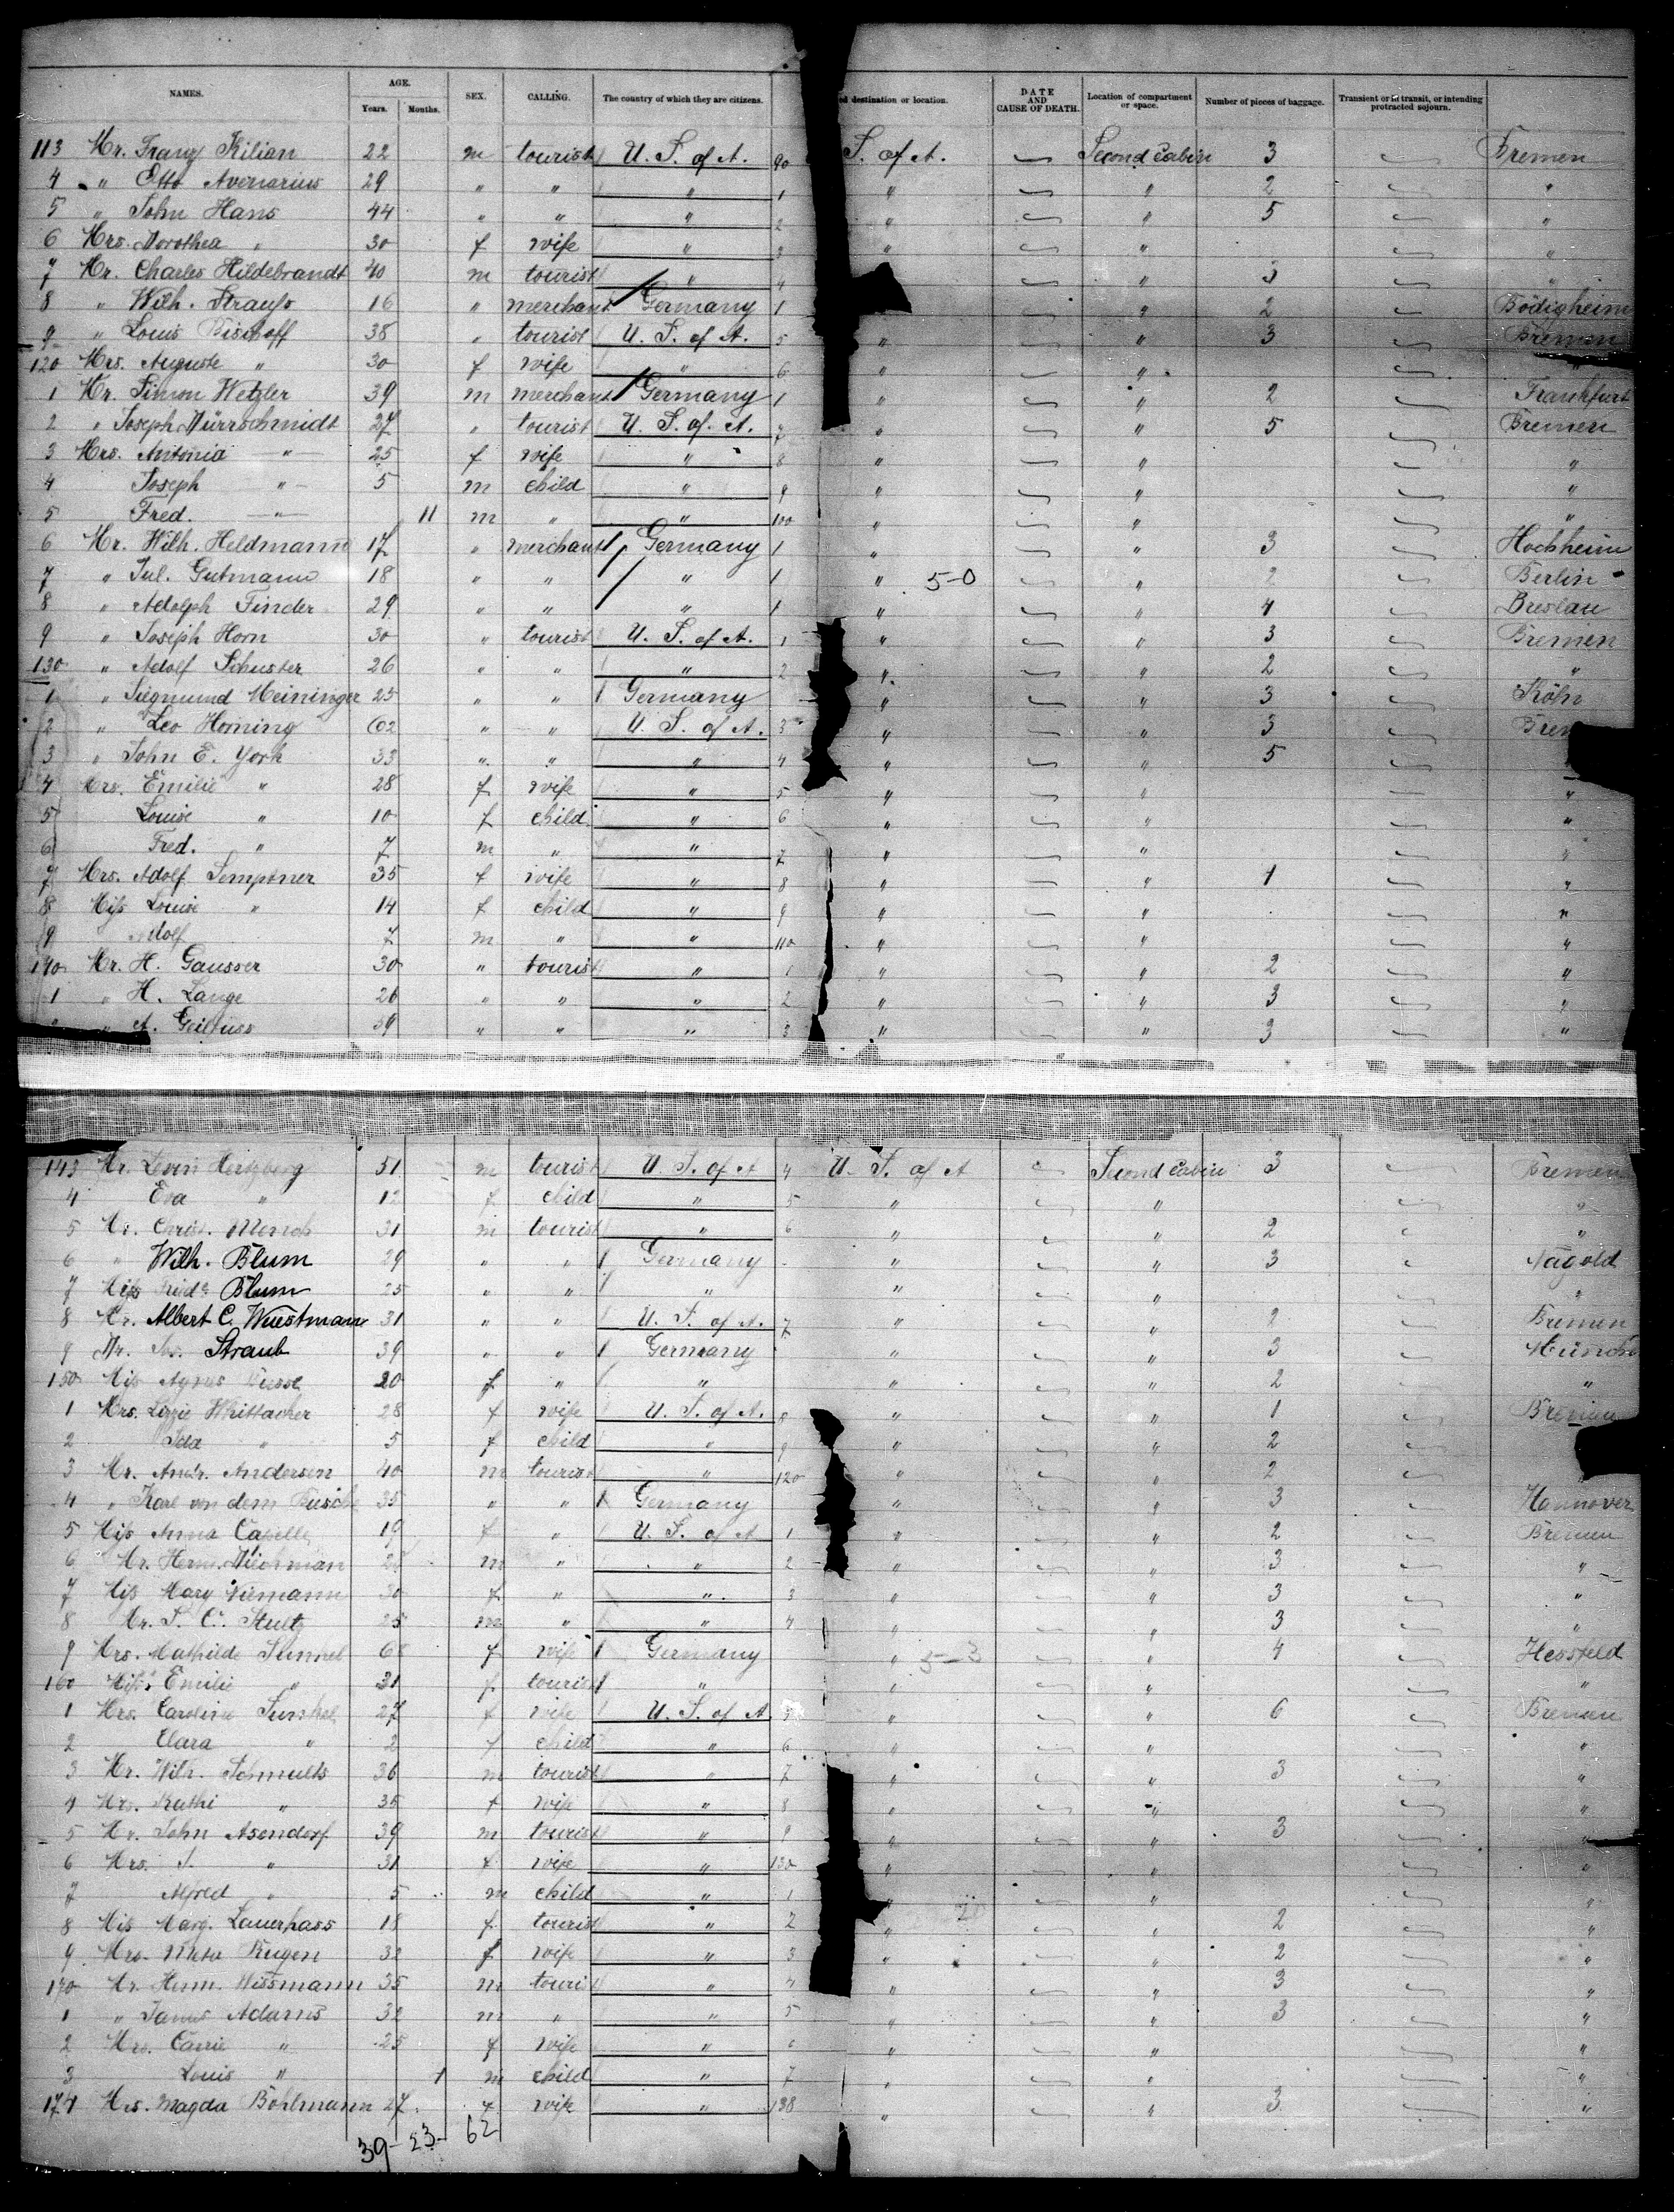 NAMES. AGE. Years. Months. SEX. CALLING. The country of which they are citizens. destination or location. DATE AND CAUSE OF DEATH. Location of compartment or space. Number of pieces of baggage. Transient or in transit, or intending protracted sojourn.
113 Mr. Franz Kilian 22 m tourist U. S. of A. 90 S. of A. Second Cabin 3 Bremen
4 " Otto Avenarius 29 " " " 1 " " 2 "
5 " John Hans 44 " " " 2 " " 5 "
6 Mrs. Dorothea " 30 f wife " 3 " " "
7 Mr. Charles Hildebrandt 40 m tourist " 4 " 3 "
8 " Wilh. Strauss 16 " merchant Germany 1 " 2 Bödigheim
9 " Louis Bischoff 38 " tourist U. S. of A. 5 " " 3 Bremen
120 Mrs. Auguste " 30 f wife " 6 " " "
1 Mr. Simon Wetzler 39 m merchant Germany 1 " 2 Frankfurt
2 " Joseph Dürrschmidt 27 " tourist U. S. of A. 7 " " 5 Bremen
3 Mrs. Antonia " 25 f wife " 8 " " "
4 Joseph " 5 m child " 9 " " "
5 Fred. " 11 m " " 100 " " "
6 Mr. Wilh. Heldmann 17 " merchant Germany 1 " " 3 Hochheim
7 " Jul. Gutmann 18 " " " 1 " 5-0 " 2 Berlin
8 " Adolph Finder 29 " " " 1 " " 4 Breslau
9 " Joseph Horn 30 " tourist U. S. of A. 1 " " 3 Bremen
130 " Adolf Schuster 26 " " " 2 " " 2 "
1 " Siegmund Meininger 25 " " Germany " " 3 Köln
2 " Leo Horning 62 " " U. S. of A. 3 " " 3 Brem
3 " John E. York 33 " " " 4 " " 5
4 Mrs. Emilie " 28 f wife " 5 " " "
5 Louise " 10 f child " 6 " " "
6 Fred. " 7 m " " 7 " " "
7 Mrs. Adolf Semptner 35 f wife " 8 " " 1 "
8 Miss Louise " 14 f child " 9 " " "
9 Adolf 7 m " " 110 " " "
140 Mr. H. Gausser 30 " tourist " 1 " " 2 "
1 " H. Lange 26 " " " 2 " " 3 "
" A. Geilfuss 39 " " " 3 " " 3 "
143 Mr. Levin Hertzberg 51 m tourist U. S. of A 4 U. S. of A Second Cabin 3 Bremen
4 Eva " 12 f child " 5 " " "
5 Mr. Christ. Mench 31 m tourist " 6 " " 2 "
6 " Wilh. Blum 29 " " Germany " " 3 Nagold
7 Miss Frida Blum 25 " " " " " "
8 Mr. Albert C. Wuestmann 31 " " U. S. of A. 7 " " 2 Bremen
9 Mr. Jos. Straub 39 " " Germany " " 3 München
150 Miss Agnes Busse 20 f " " " " 2 "
1 Mrs. Lizzie Whittacher 28 f wife U. S. of A. 8 " " 1 Bremen
2 Ida " 5 f child " 9 " " 2
3 Mr. Andr. Andersen 40 m tourist " 120 " " 2
4 " Karl von dem Busche 35 " " Germany " " 3 Hannover
5 Miss Anna Capelle 19 f " U. S. of A 1 " " 2 Bremen
6 Mr. Herm. Dieckman m " " 2 " " 3 "
7 Miss Mary Niemann 30 f " " 3 " " 3 "
8 Mr. S. C. Stultz 25 m " " 4 " " 3 "
9 Mrs. Mathilde Sunkel 68 f wife Germany " 5-3 " 4 Hersfeld
160 Miss. Emilie " 31 f tourist " " " "
1 Mrs. Caroline Sunkel 27 f wife U. S. of A 5 " " 6 Bremen
2 Clara " 2 f child " 6 " " "
3 Mr. Wilh. Schmults 36 m tourist " 7 " " 3 "
4 Mrs. Kathi " 35 f wife " 8 " " "
5 Mr. John Asendorf 39 m tourist " 9 " " 3 "
6 Mrs. " 31 f wife " 130 " " "
7 Alfred " 5 m child " 1 " " "
8 Mis Marg. Lauerhass 18 f tourist " 2 " " 2 "
9 Mrs. Meta Kugen 32 f wife " 3 " " 2 "
170 Mr. Herm. Wissmann 35 m tourist " 4 " " 3 "
1 " James Adams 32 m " " 5 " " 3 "
2 Mrs. Carrie " 25 f wife " 6 " " "
3 Louis " 1 m child " 7 " " "
174 Mrs. Magda Bohlmann 27 f wife " 138 " " 3 "
39- 23- 62